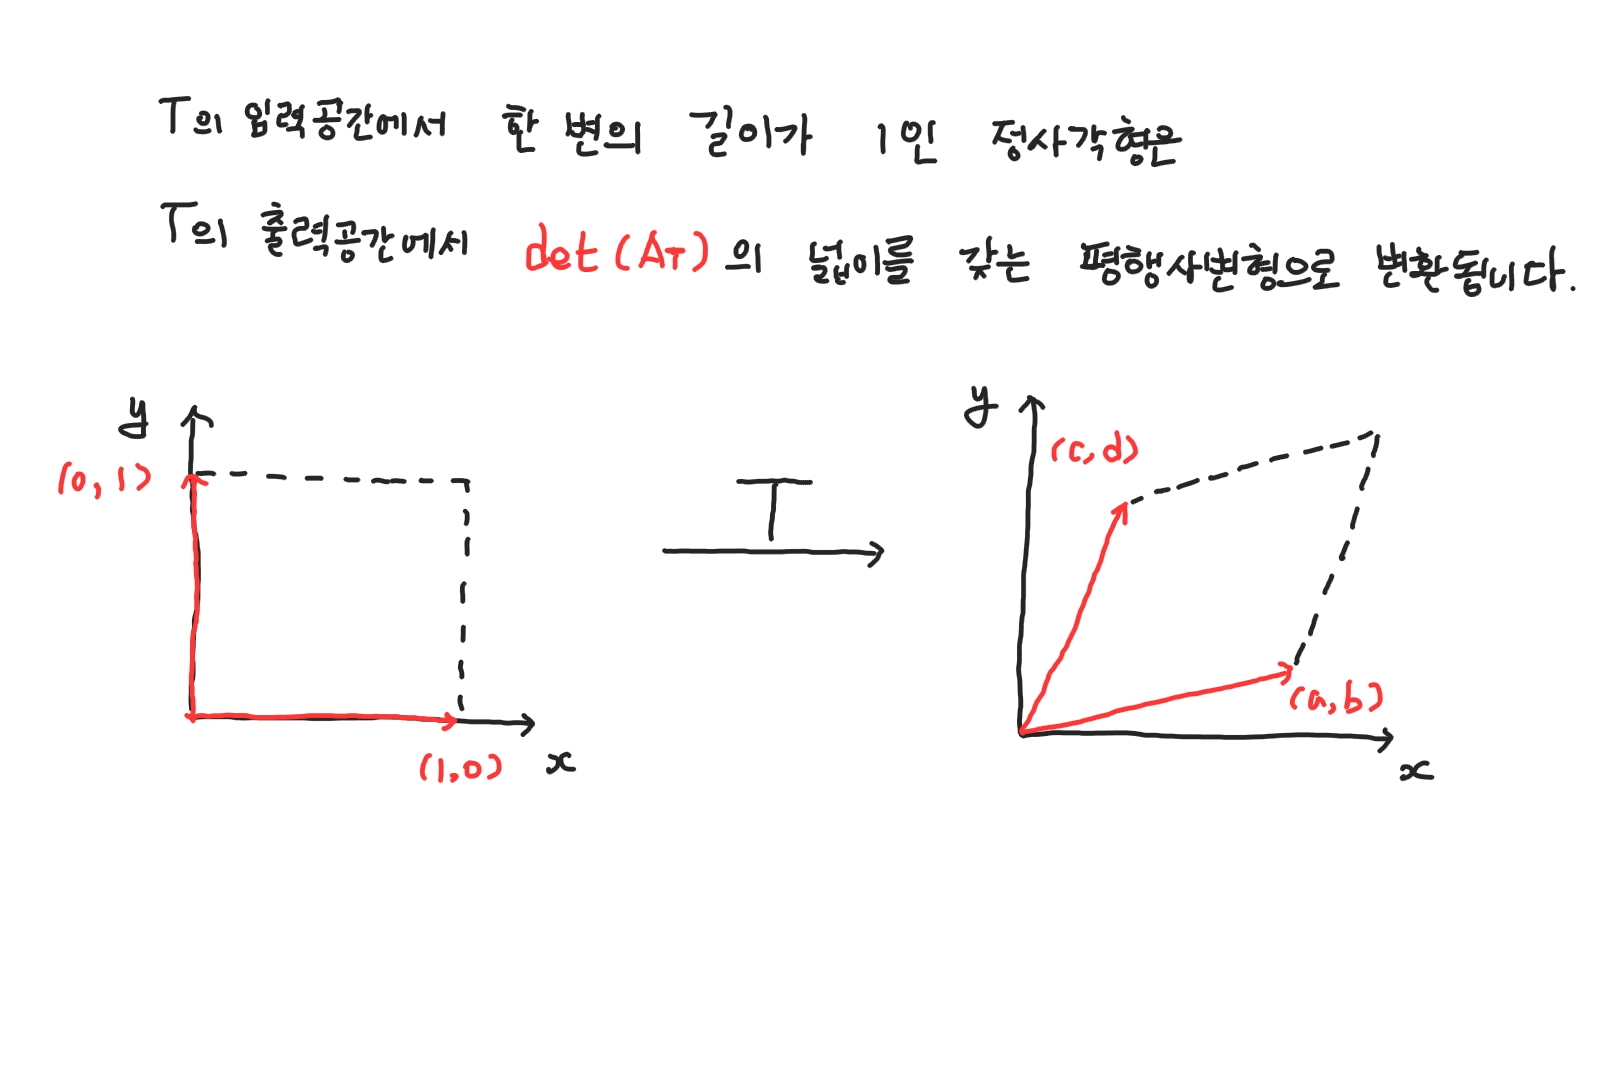 T의 입력공간에서 한 변의 길이가 1인 정사각형은
T의 출력공간에서 det(A_T)의 넓이를 갖는 평행사변형으로 변환됩니다.
y
(0, 1)
(1,0)
x
T
y
(c,d)
(a,b)
x